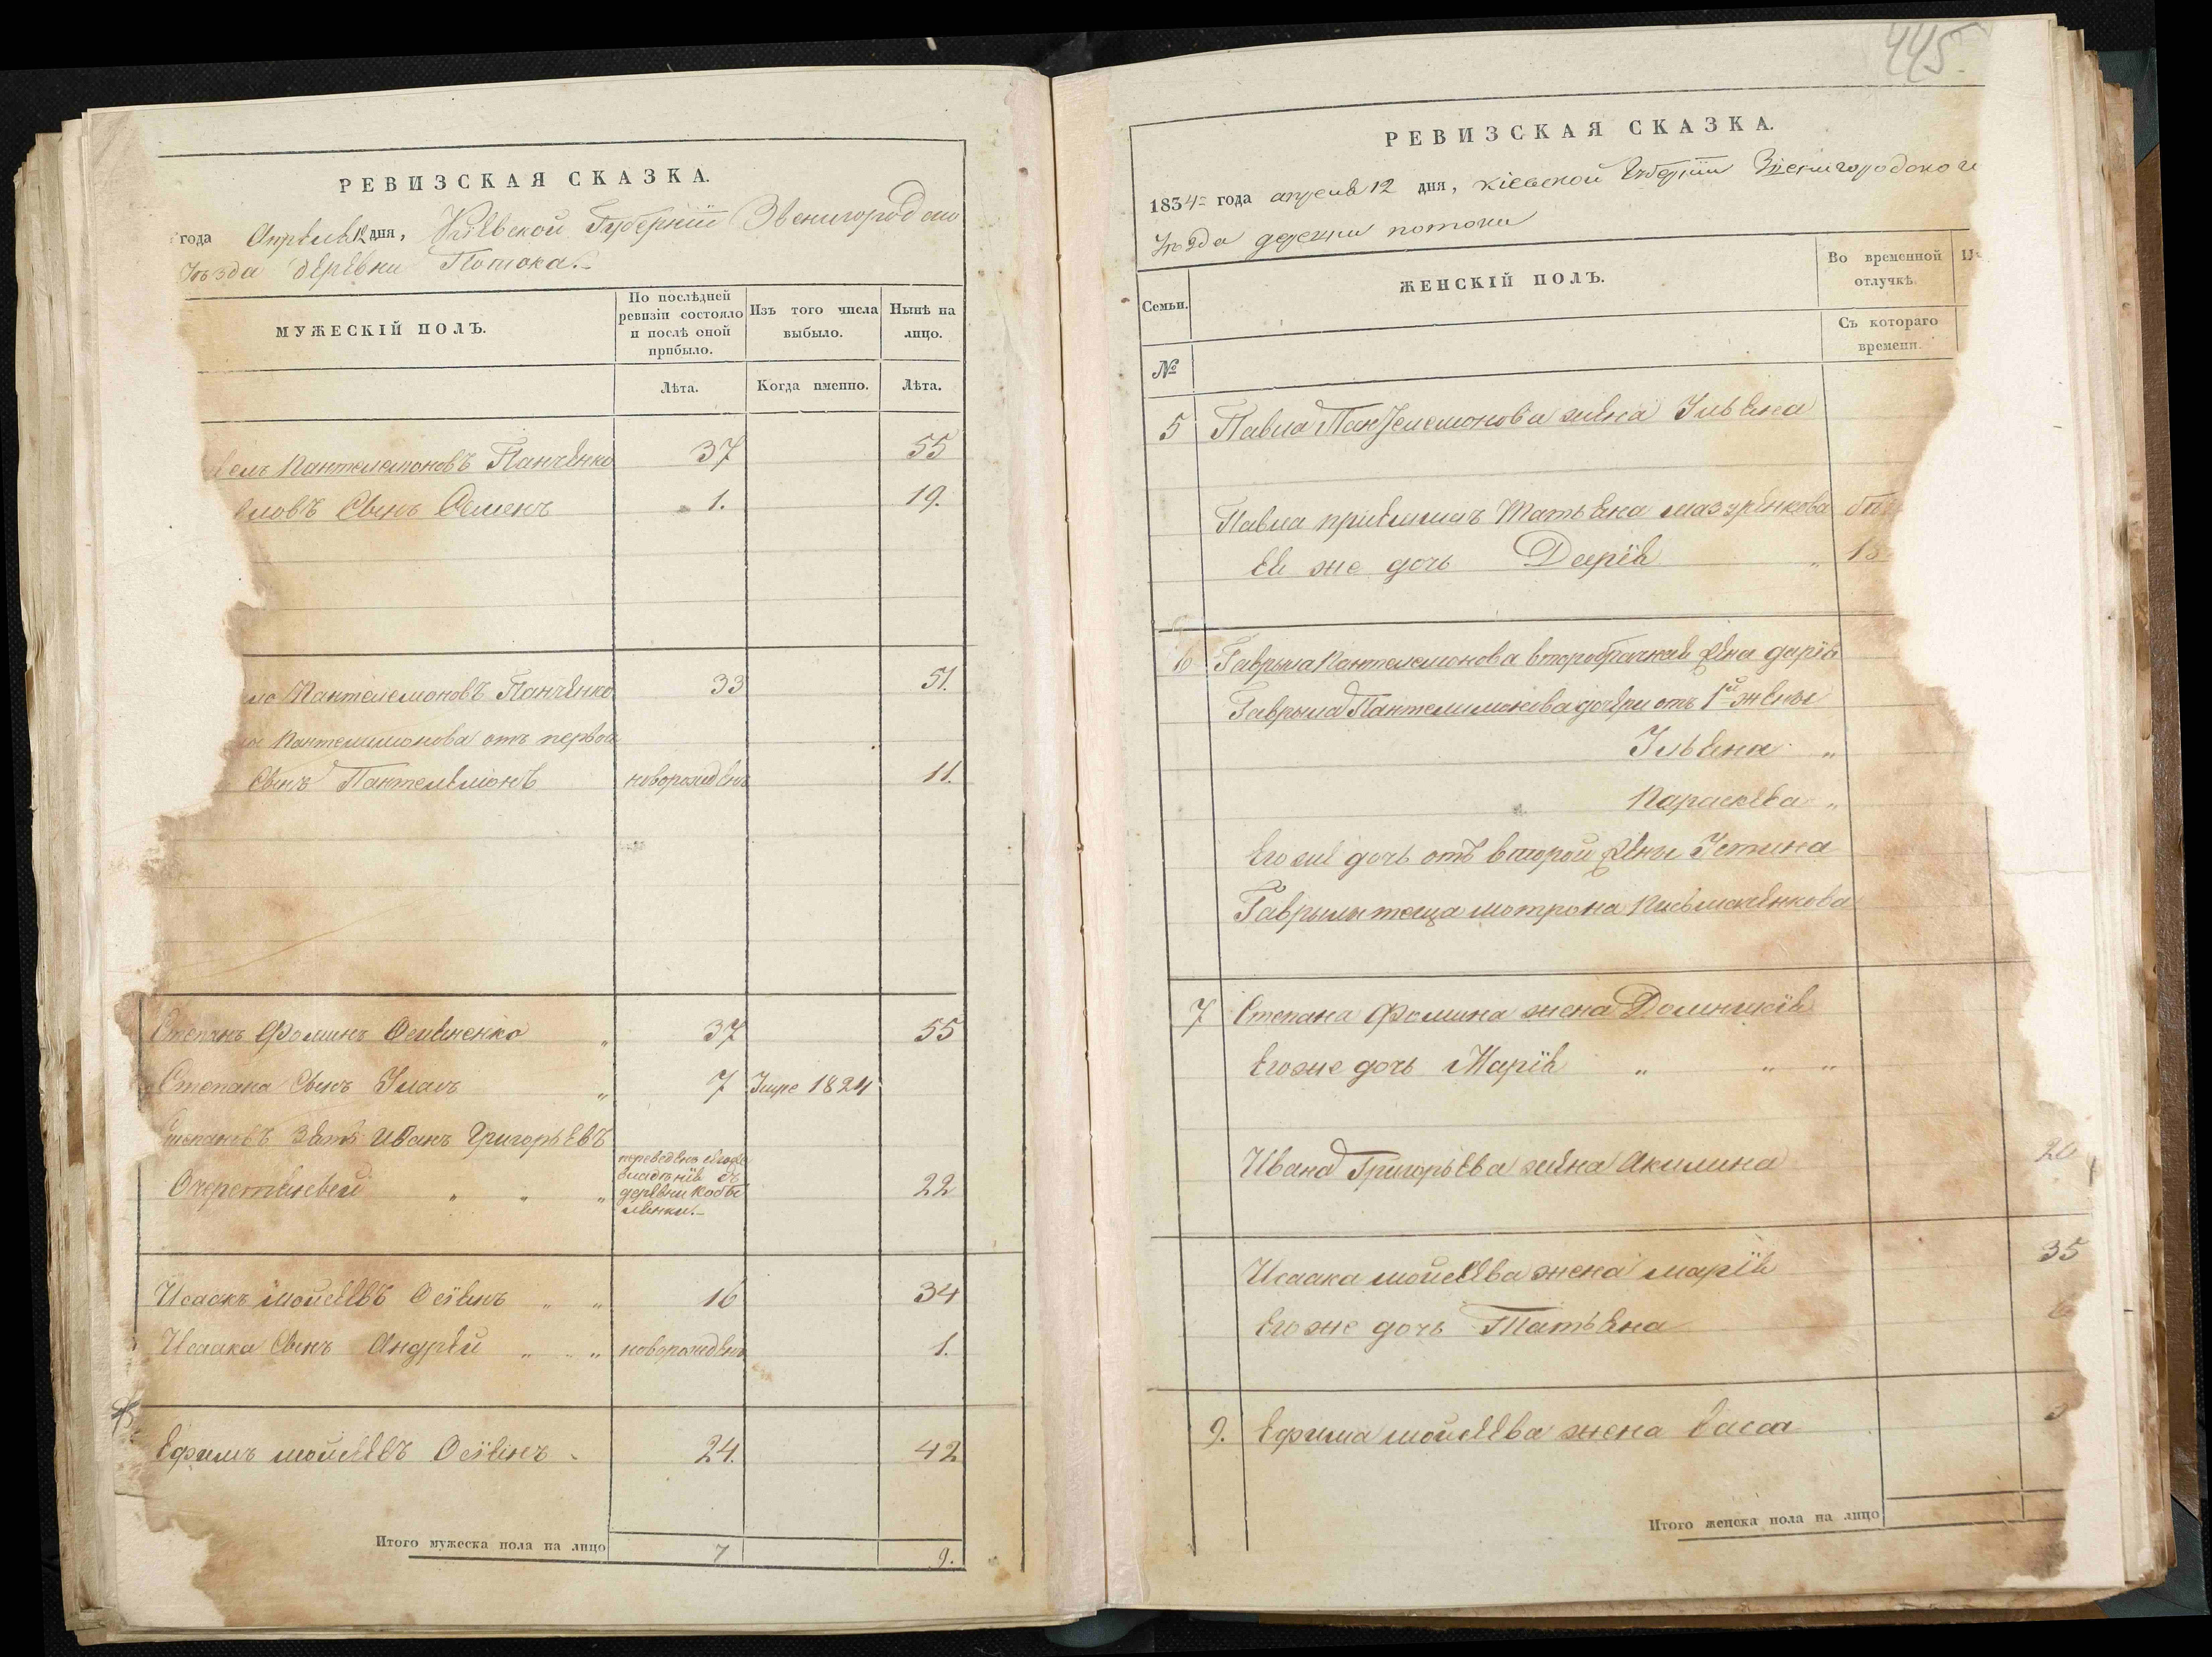 РЕВИЗСКАЯ СКАЗКА.
года Апреля 12 дня, Кіевской Губерніи Звенигородско
Уѣзда деревни Потока.
МУЖЕСКІЙ ПОЛЪ.
По послѣдней ревизіи состояло и послѣ оной прибыло.
Изъ того числа выбыло.
Нынѣ на лицо.
Лѣта.
Когда именно.
Лѣта.
Пантелемоновъ Панченко 37 55
Сынъ Семенъ 1. 19.
Пантелемоновъ Панченко 33 51.
Пантелимонова отъ первой
Сынъ Пантелемонъ новорожденъ 11.
Степанъ Фоминъ 37 55
Степана Сынъ 7 1824
Зять Иванъ Григорьевъ
переведенъ
деревни
22
Исаакъ Мойсеевъ 16 34
Исаака Сынъ Андрей новорожденъ 1.
Ефимъ Мойсеевъ 24. 42
Итого мужеска пола на лицо 7 9.
445
РЕВИЗСКАЯ СКАЗКА.
1834 года апреля 12 дня, Кіевской Губерніи Звенигородского
Уѣзда деревни потоки
Семьи.
ЖЕНСКІЙ ПОЛЪ.
Во временной отлучкѣ.
Съ котораго времени.
№
5 Павла Пантелемонова жена Ульяна
Павла Татьяна мазуренкова
Ея же дочь Дарія 1
6 Гаврыла Пантелемонова второбрачная жена дарія
Гаврыла Пантелимонова дочери отъ 1й жены
Ульяна "
Параскева "
Его же дочь отъ второй жены Устина
Гаврылы теща мотрона
7 Степана Фомина жена
Его же дочь Марія " " "
Ивана Григорьева жена Акилина 20
Исаака мойсеева жена марія 35
Его же дочь Татьяна 6
9. Ефима мойсеева жена Васса 3
Итого женска пола на лицо